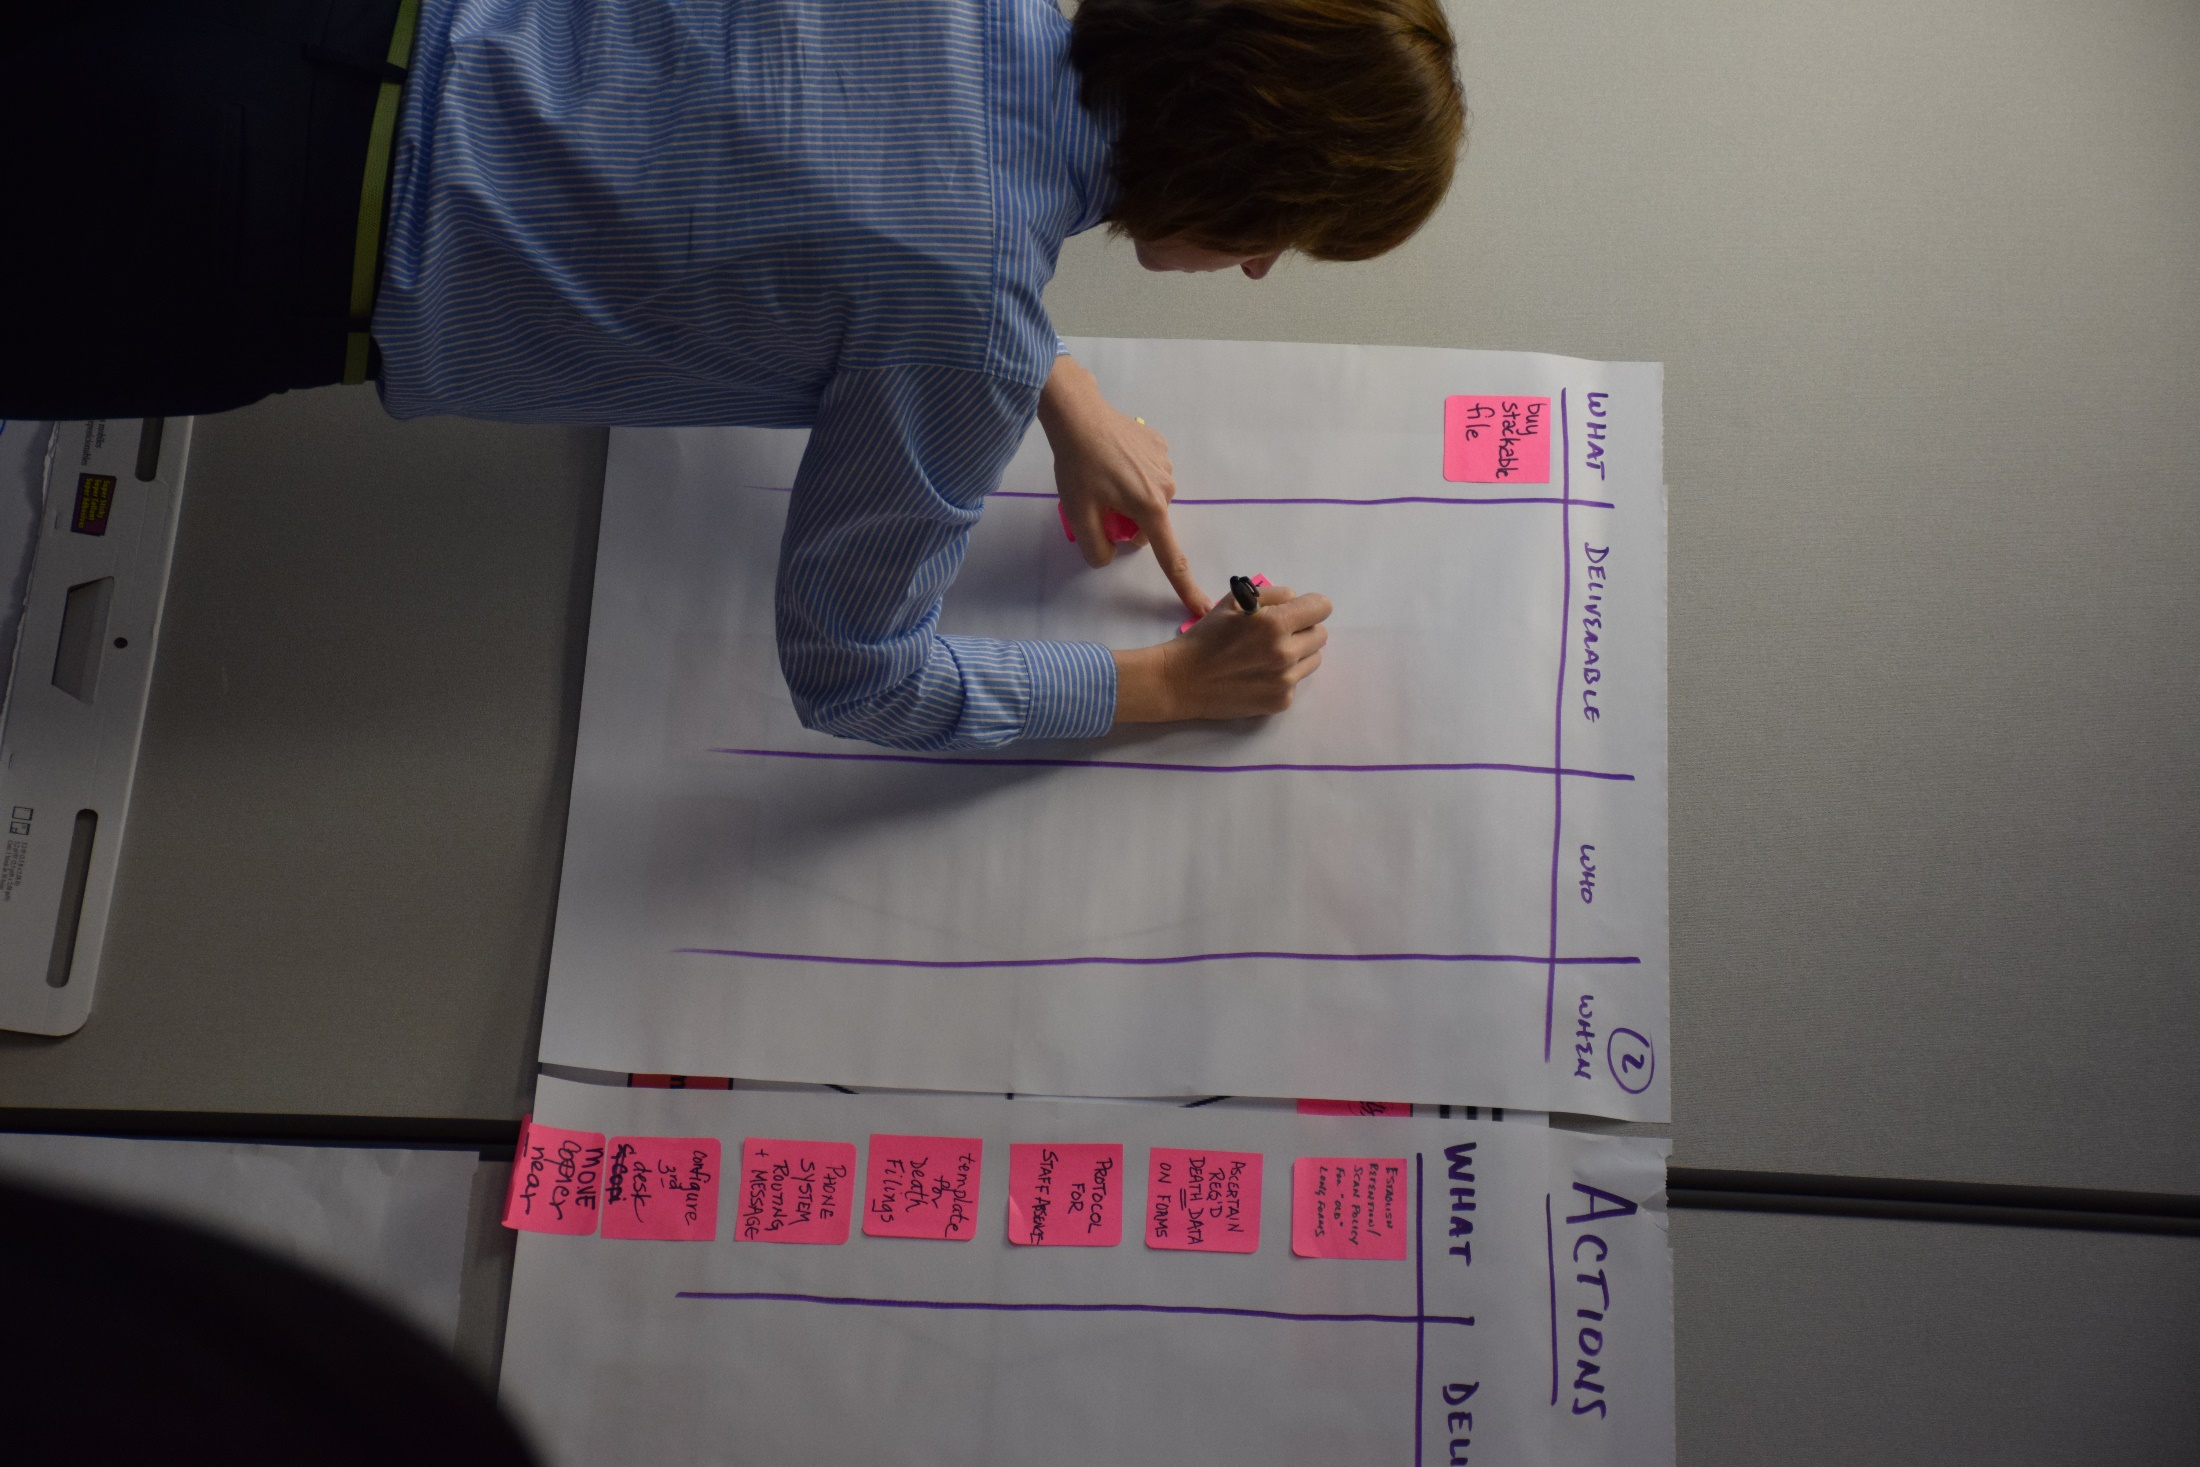 2
WHAT
DELIVERABLE
WHO
WHEN
buy
stackable
file
ACTIONS
WHAT
DELI
ESTABLISH
RETENTION/
SCAN POLICY
FOR "OLD"
LONG FORMS
ASCERTAIN
REQ'D
DEATH DATA
ON FORMS
PROTOCOL
FOR
STAFF ABSENCE
template
for
Death
Filings
PHONE
SYSTEM
ROUTING
+ MESSAGE
configure
3rd
desk
MOVE
copier
near
Super Sticky